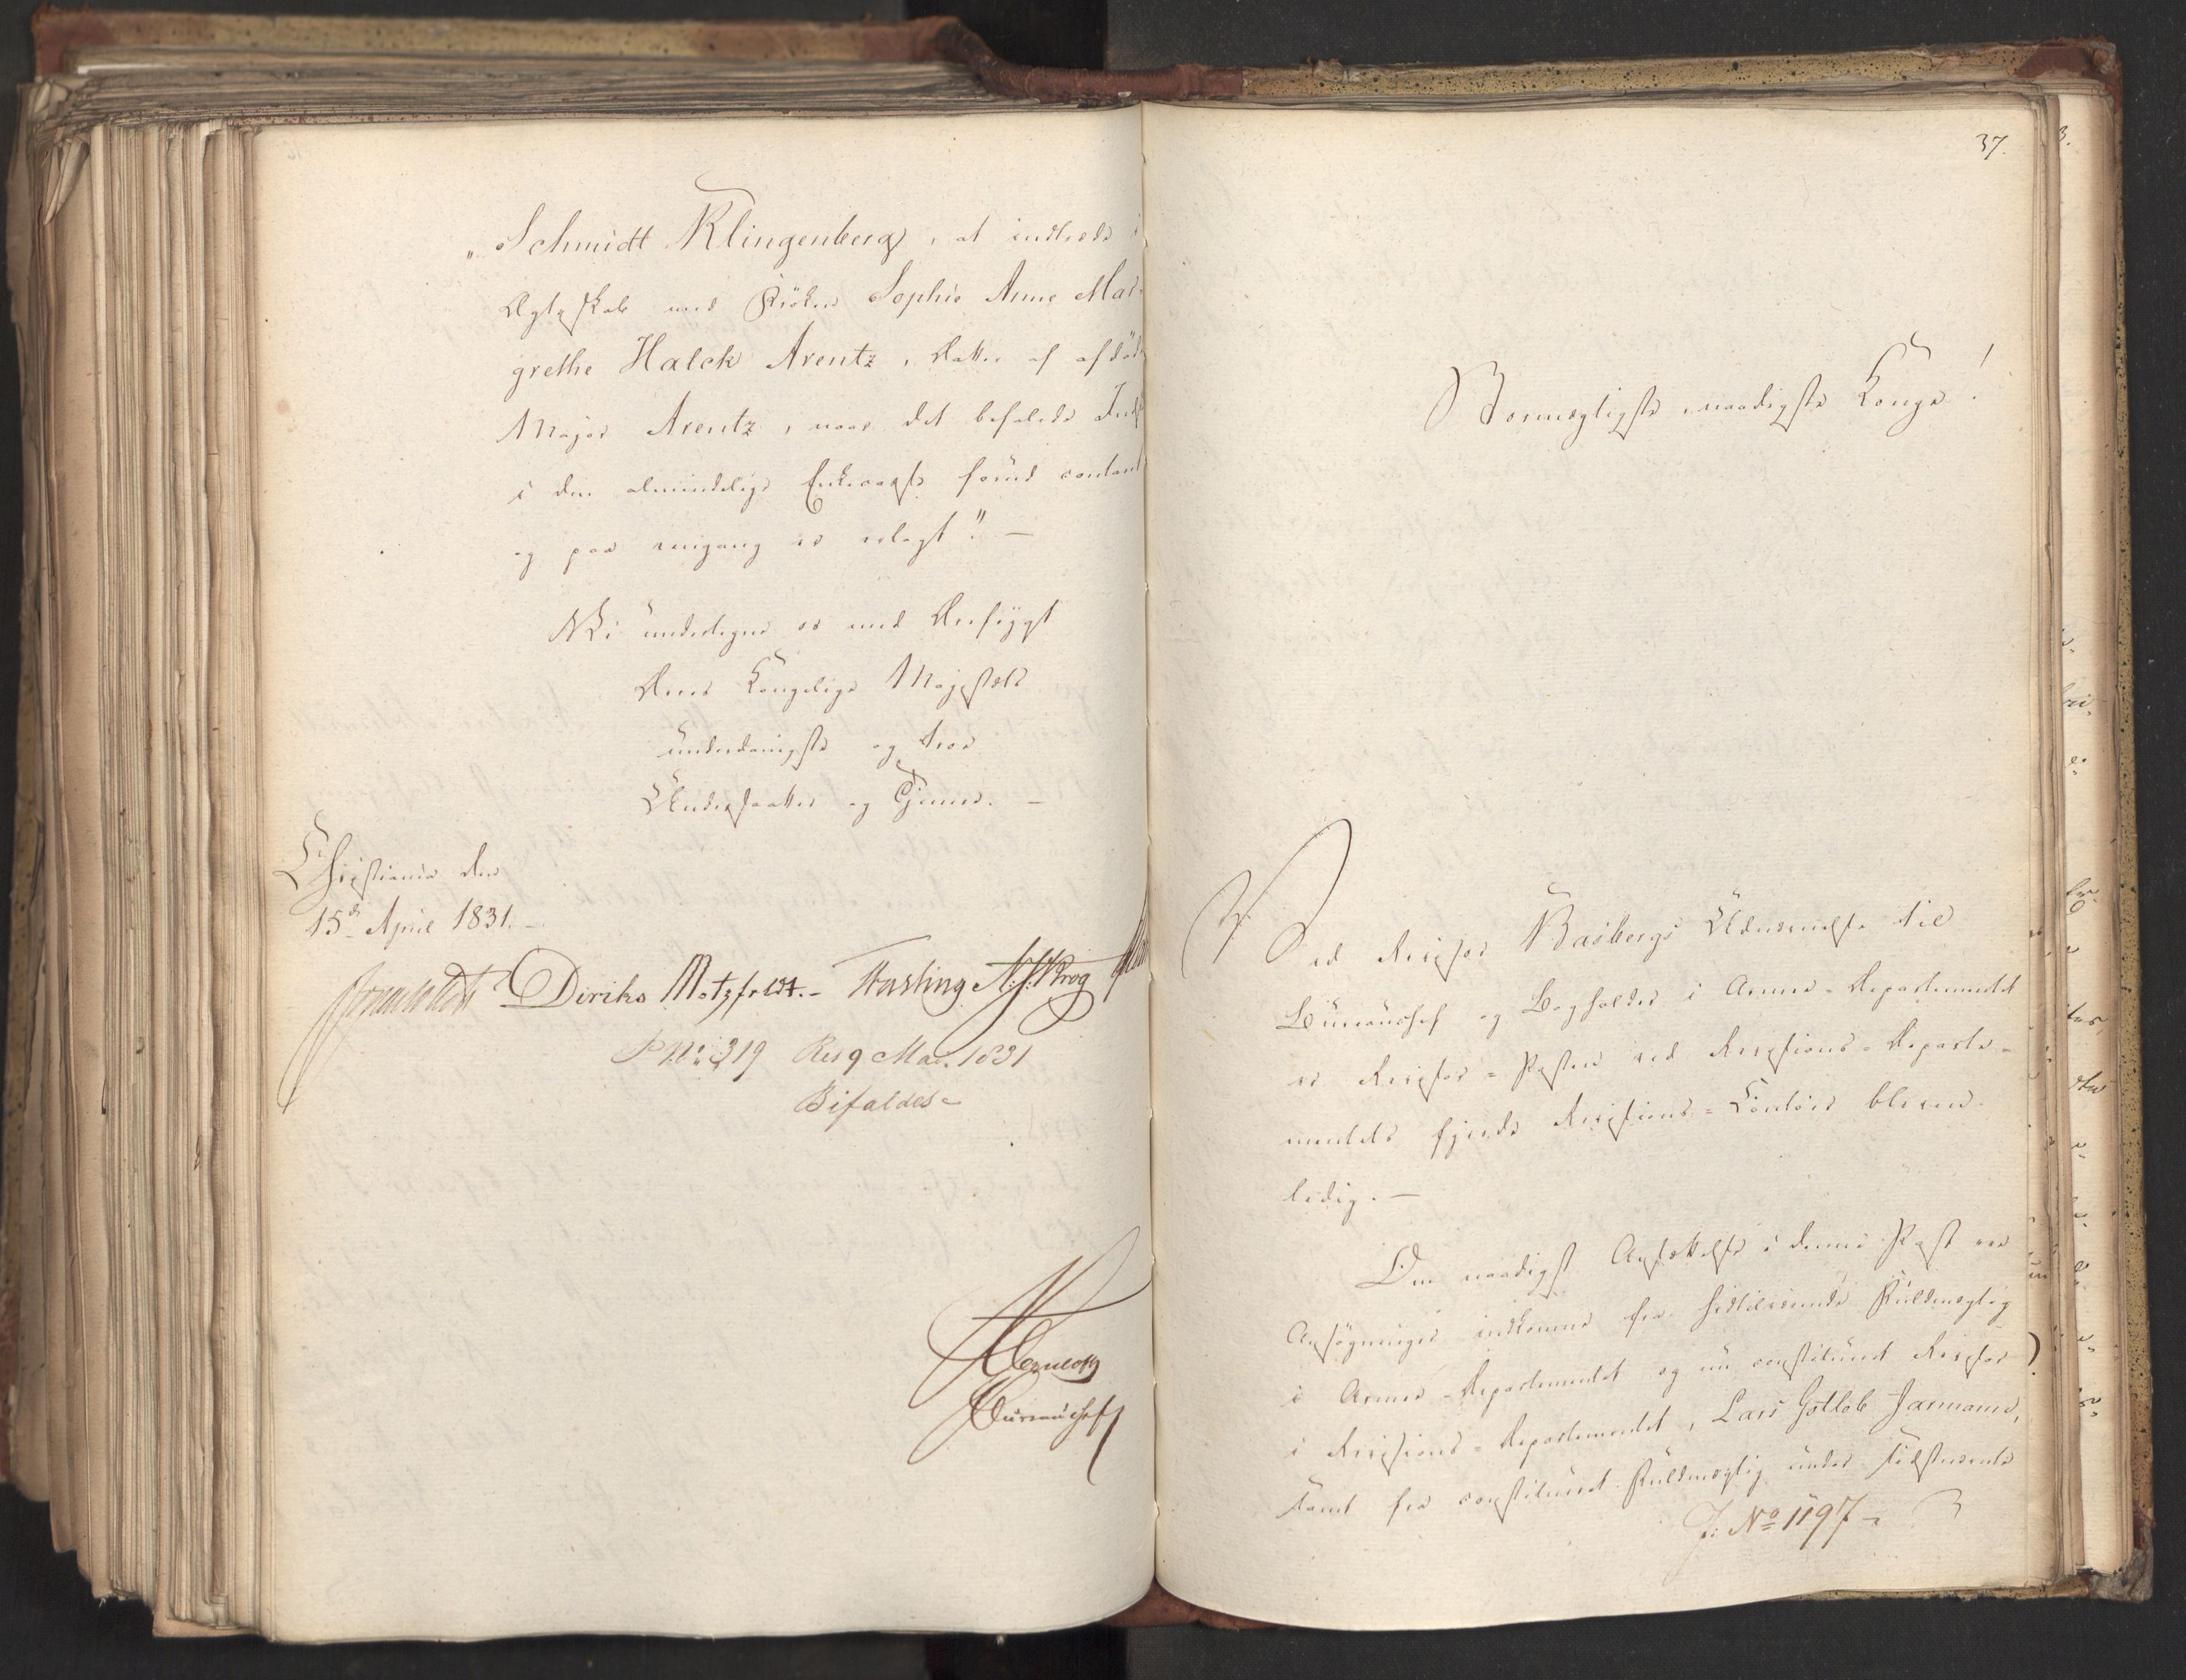 „Schmidt Klingenberg, at indtræde i
Ægteskab med Frøken Sophie Anne Mar-
grethe Halck Arentz, Datter af afdøde
Major Arentz, naar det befalede Indsk
i den almindelige Enkecasse forud contant
og paa eengang er erlagt". —
Vi undertegne os med Derfrygt
Deres Kongelige Majestæts
underdanigste og troe
Undersaatter og Tjenere. —
Christiania den
15de April 1831. —
Diriks Motzfeldt. – Fasting N. J. Krog
P No 319 Res 9 Mai 1831
Bifaldes –
Bureauchef
37.
Stormægtigste, naadigste Konge!
Ved Revisor Basbergs Udnævnelse til
Bureauchef og Bogholder i Armee-Departementet
er Revisor-Posten ved Revisions-Departe-
mentets fjerde Revisions-Contoir bleven
ledig. —
Om naadigst Ansættelse i denne Post ere
Ansøgninger indkomne fra hidtilværende Fuldmægtig
i Armee-Departementet og nu constitueret Revisor
i Revisions-Departementet, Lars Gotlob Jarmann,
samt fra constitueret Fuldmægtig under
J: No 1197 –